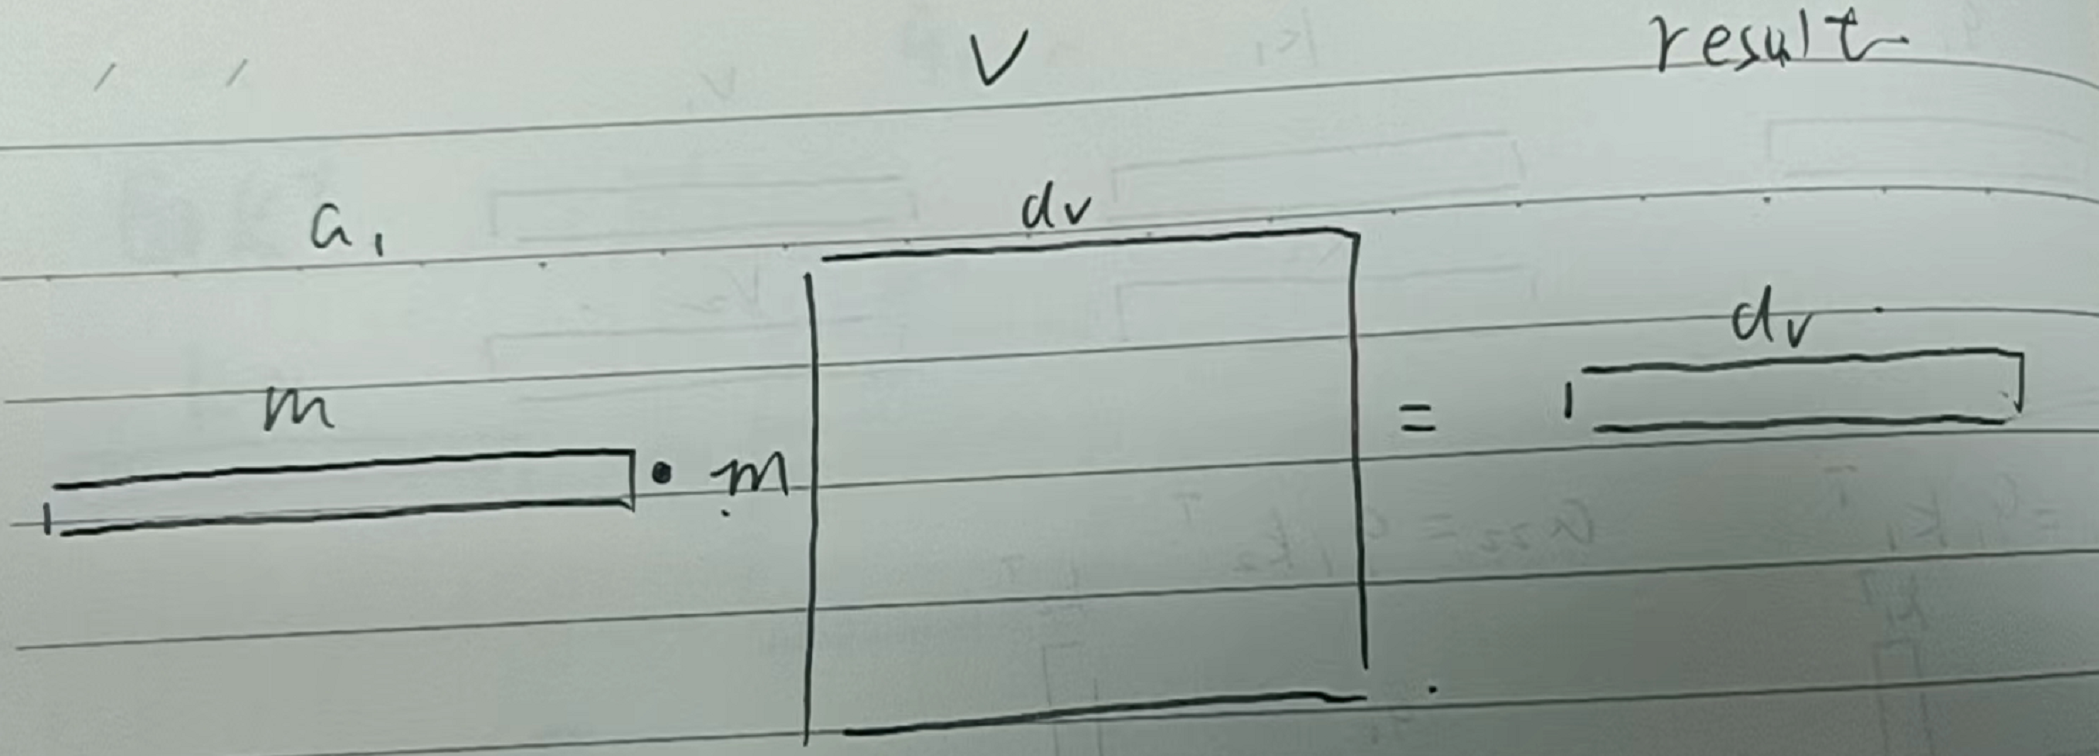 V result
a₁ dv
dv
m
1 • m = 1